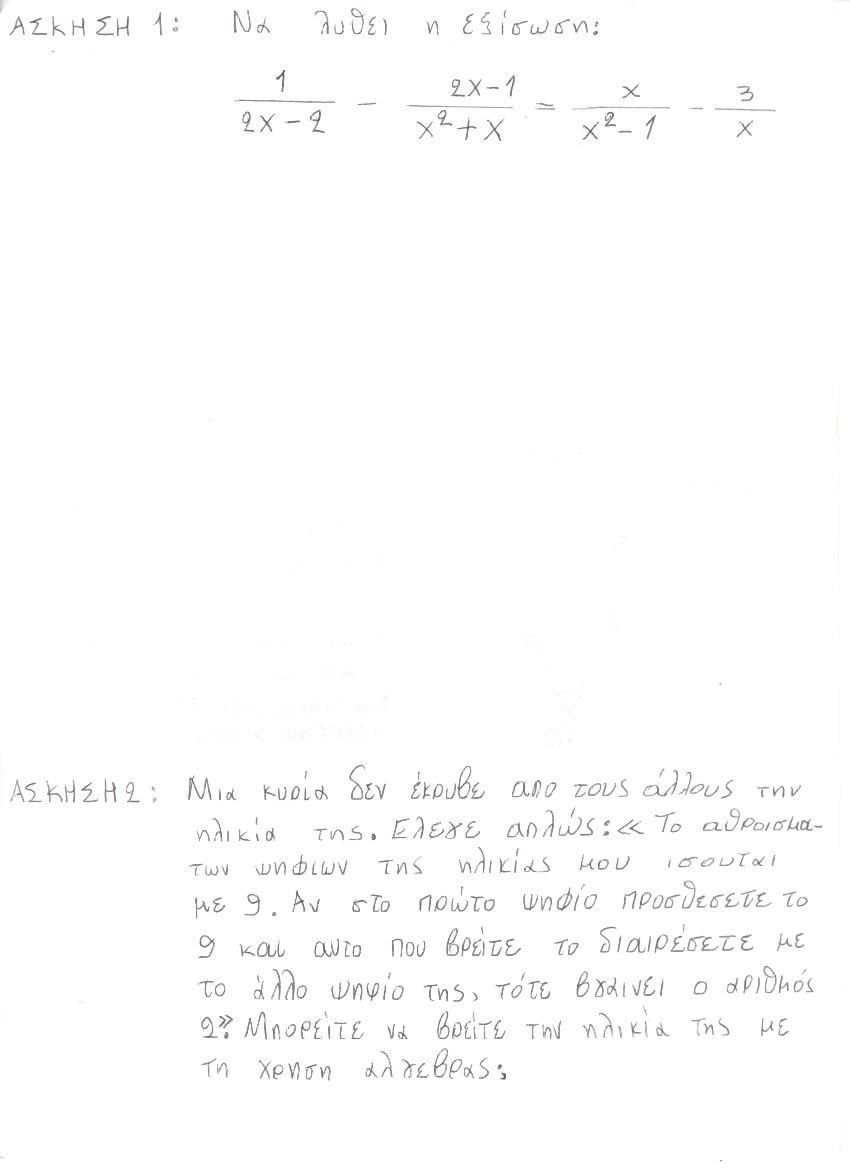 ΑΣΚΗΣΗ 1: Να λυθει η εξίσωση:
1/(2x-2) - (2x-1)/(x²+x) = x/(x²-1) - 3/x
ΑΣΚΗΣΗ 2: Μια κυρία δεν έκρυβε απο τους άλλους την
ηλικία της. Ελεγε απλώς: << Το αθροισμα-
των ψηφιων της ηλικίας μου ισουται
με 9. Αν στο πρώτο ψηφίο προσθεσετε το
9 και αυτο που βρείτε το διαιρέσετε με
το άλλο ψηφίο της, τότε βγαινει ο αριθμός
2>>. Μπορείτε να βρείτε την ηλικία της με
τη χρηση αλγεβρας;